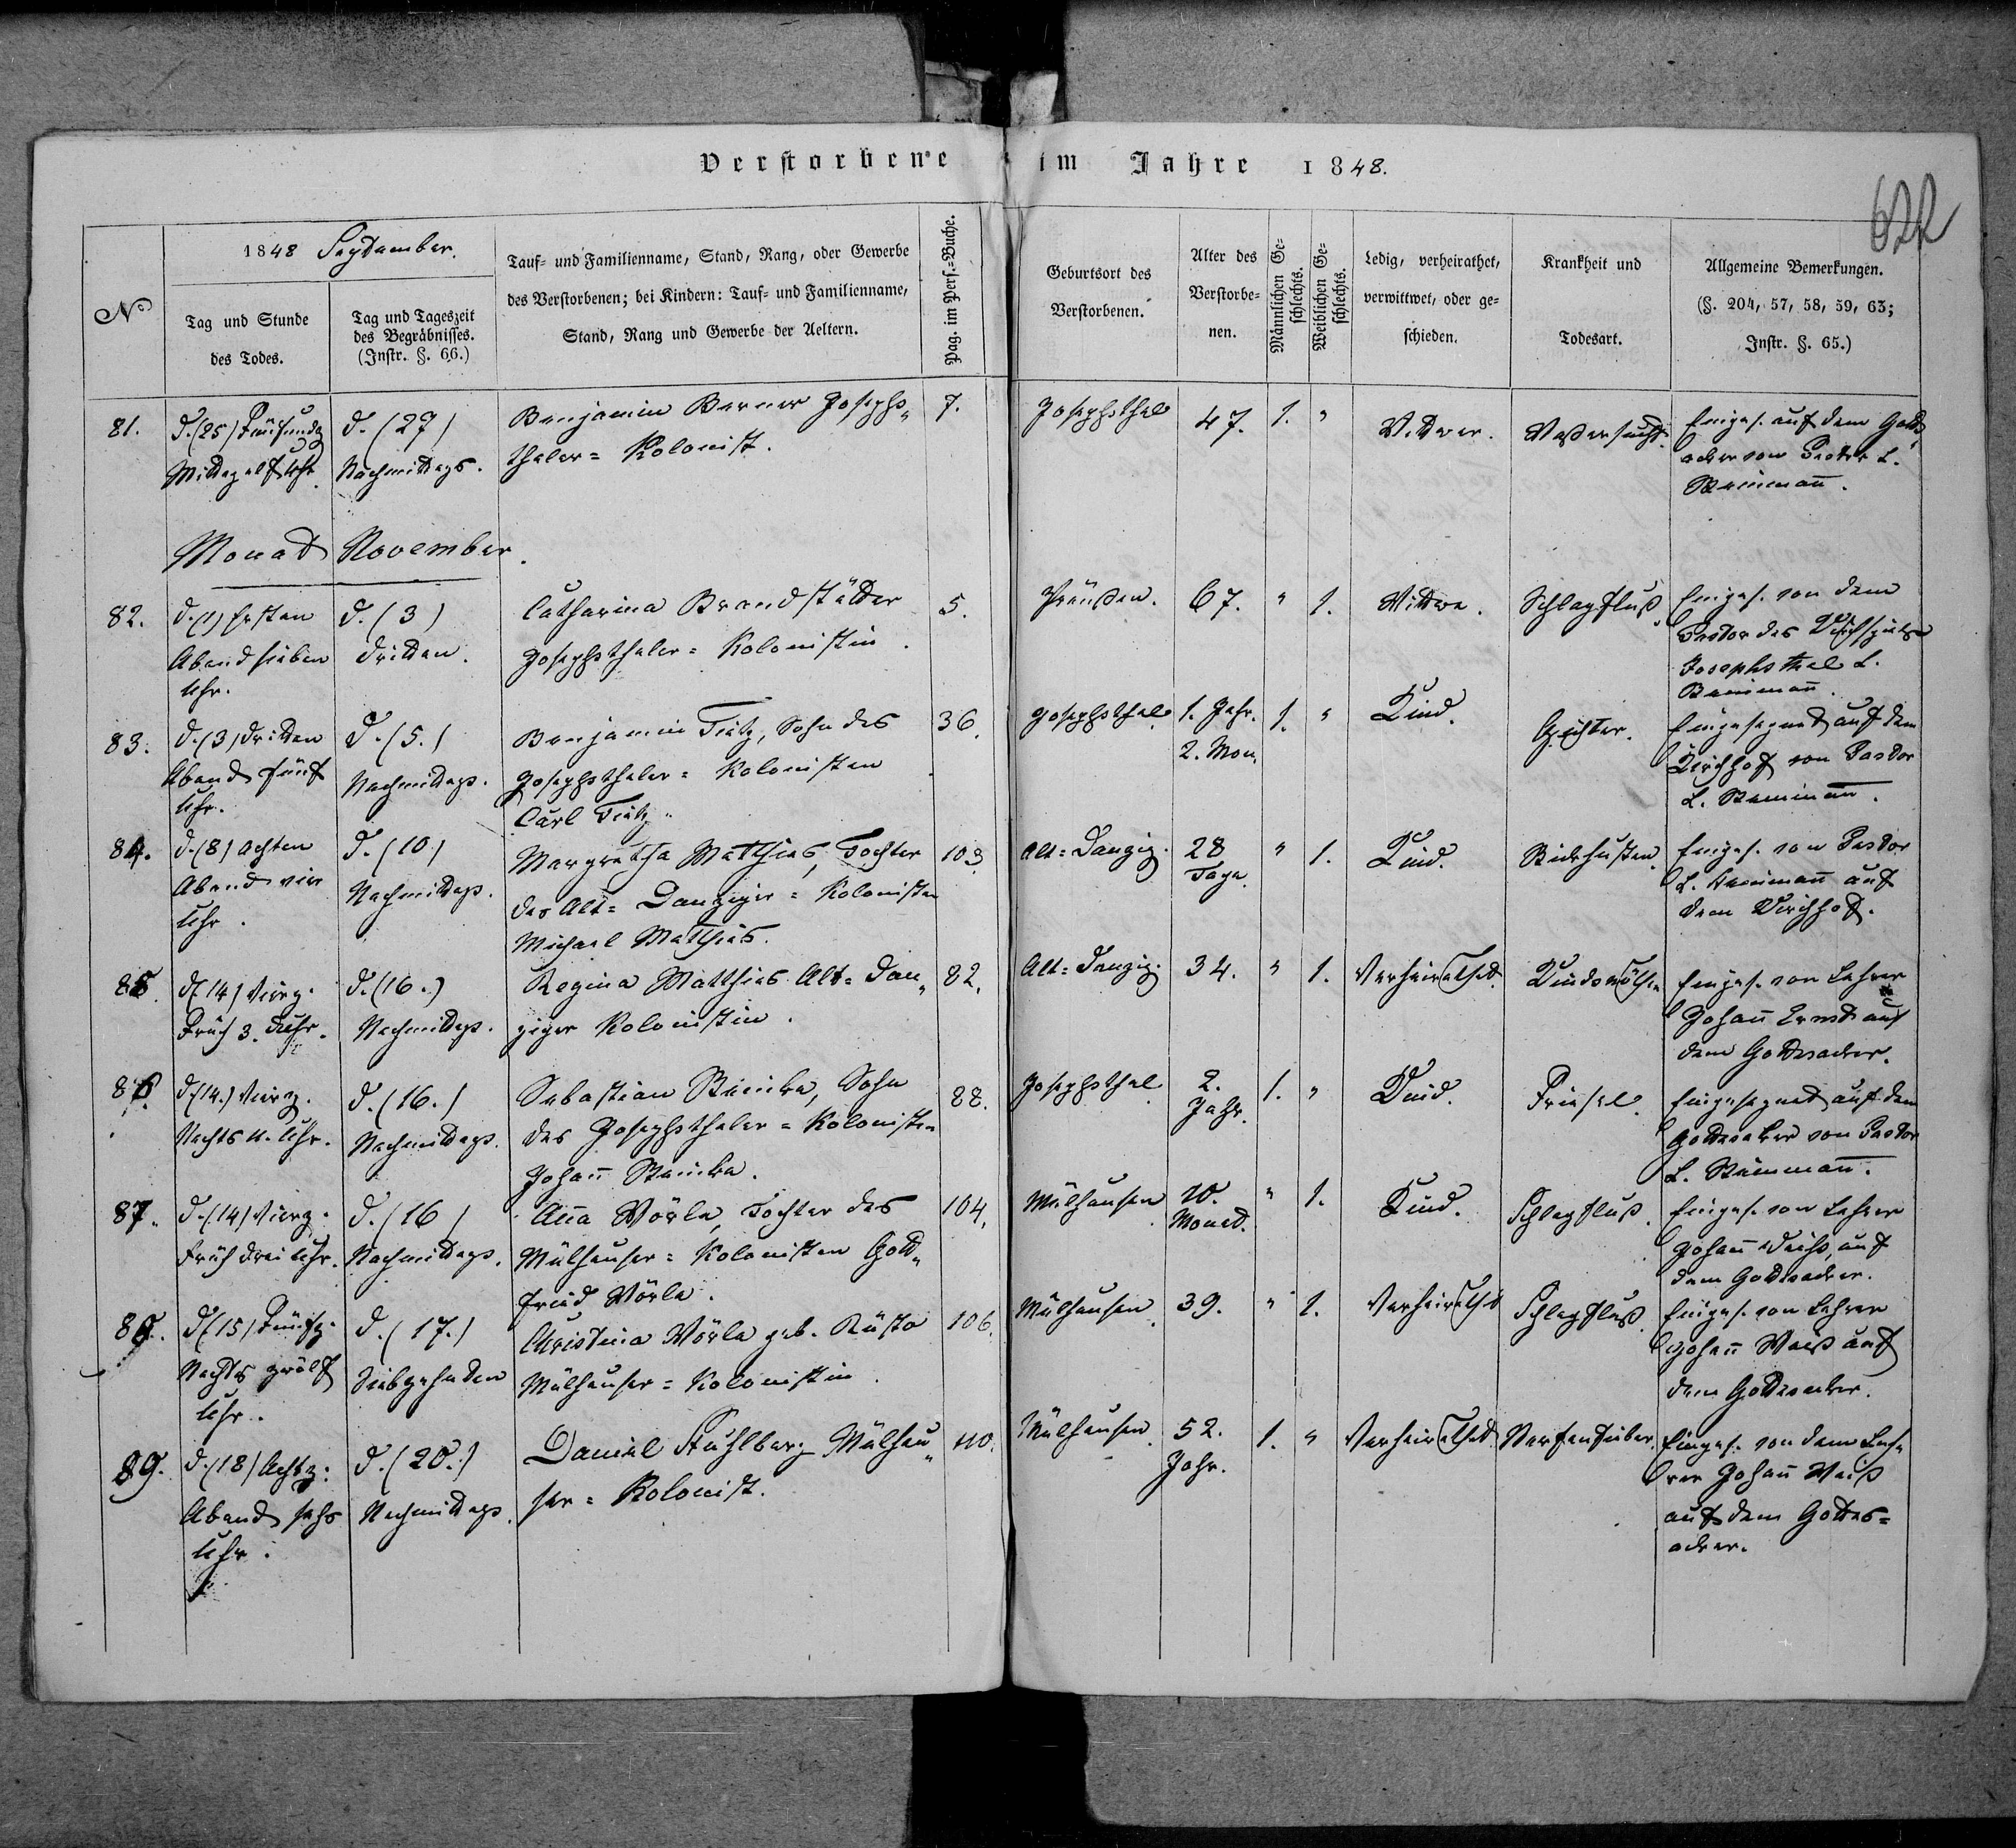 Verstorbene im Jahre 1848.
622
No
1848 September.
Tag und Stunde
des Todes.
Tag und Tageszeit
des Begräbnisses.
(Instr. §. 66.)
Tauf- und Familienname, Stand, Rang, oder Gewerbe
des Verstorbenen; bei Kindern: Tauf- und Familienname,
Stand, Rang und Gewerbe der Aeltern.
Pag. im Pers.-Buche.
Geburtsort des
Verstorbenen.
Alter des
Verstorbe-
nen.
Männlichen Ge-
schlechts.
Weiblichen Ge-
schlechts.
Ledig, verheirathet,
verwittwet, oder ge-
schieden.
Krankheit und
Todesart.
Allgemeine Bemerkungen.
(§. 204, 57, 58, 59, 63;
Instr. §. 65.)
81.
d. (25)
Mittag elf Uhr.
d. (27)
Nachmittags.
Benjamin Berner Josephs„
thaler= Kolonist.
7.
Josephsthal
47.
1.
"
Wittwer.
Waßersucht.
Einges. auf dem Gotts
acker von Pastor L.
Monat November.
82.
d. (1) Ersten
Abend sieben
Uhr.
d. (3)
dritten.
Catharina Brandstätter
Josephsthaler= Kolonistin.
5.
Preußen.
67.
"
1.
Wittwe.
Schlagfluß.
Einges. von dem
Pastor des Kirchspiels
Josephsthal L.
83.
d. (3) dritten
Abend fünf
Uhr.
d. (5.)
Nachmittags.
Benjamin Tietz, Sohn des
Josephsthaler= Kolonisten
Carl Tietz.
36.
Josephsthal
1. Jahr.
2. Mon.
1.
"
Kind.
Gichter.
Eingesegnet auf dem
Kirchhof von Pastor
L.
84.
d. (8) Achten
Abend vier
Uhr.
d. (10)
Nachmittags.
Margretha Matthies, Tochter
des Alt= Danziger= Kolonisten
Michael Matthies.
103
Alt= Danzig.
28
Tage.
"
1.
Kind.
Stickhusten.
Einges. von Pastor
L. auf
dem Kirchhof.
85.
d. (14) Vierz.
Früh 3. Uhr.
d. (16.)
Nachmittags.
Regina Matthies Alt= Dan„
ziger Kolonistin.
82.
Alt= Danzig.
34.
"
1.
Verheirathet.
Kindsnöthen
Einges. von Lehrer
Johañ Ernst auf
dem Gottesacker.
86.
d. (14.) Vierz.
Nachts 11. Uhr.
d. (16.)
Nachmittags.
Sebastian Reinke, Sohn
des Josephsthaler= Kolonisten
Johañ Reinke.
88.
Josephsthal
2.
Jahr.
1.
"
Kind.
Friesel.
Eingesegnet auf dem
Gottesacker von Pastor
L.
87.
d. (14) Vierz.
Früh drei Uhr.
d. (16)
Nachmittags.
Aña Wörle, Tochter des
Mülhauser= Kolonisten Gott„
fried Wörle.
104.
Mülhausen
10.
Monat.
"
1.
Kind.
Schlagfluß.
Einges. von Lehrer
Johañ auf
dem Gottesacker.
88.
d. (15) Fünfz.
Nachts zwölf
Uhr.
d. (17.)
Siebzehnten
Christina Wörle geb.
Mülhauser= Kolonistin.
106.
Mülhausen.
39.
"
1.
Verheirathet
Schlagfluß.
Einges. von Lehrer
Johañ Weiß auf
dem Gottesacker.
89.
d. (18) Achtz.
Abend sechs
Uhr.
d. (20.)
Nachmittags.
Daniel Stuhlberg Mülhau„
ser= Kolonist.
110.
Mülhausen.
52.
Jahr.
1.
"
Verheirathet.
Nervenfieber.
Einges. von dem Leh„
rer Johañ Weiß
auf dem Gottes=
acker.